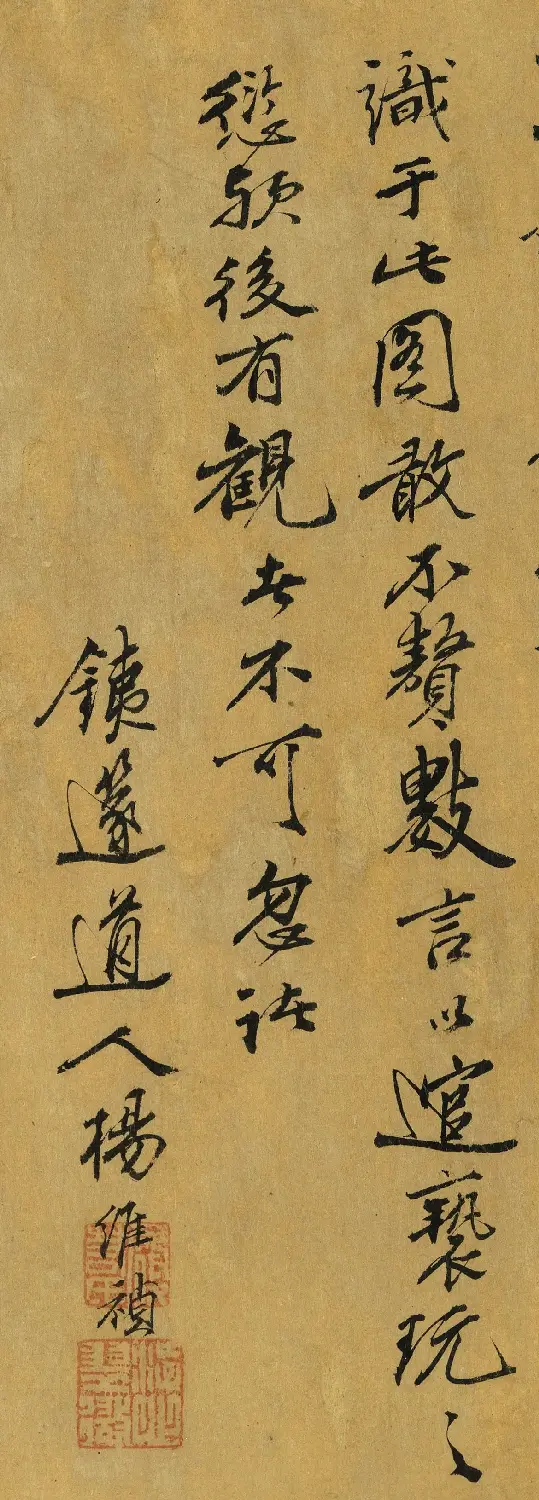 識于此圖敢不贅數言以逭褻玩之
愆願後有觀者不可忽諸
銕篴道人楊維禎